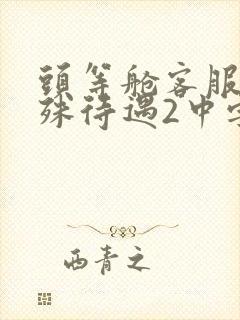 頭等舱客服
殊待遇2中字
西青之